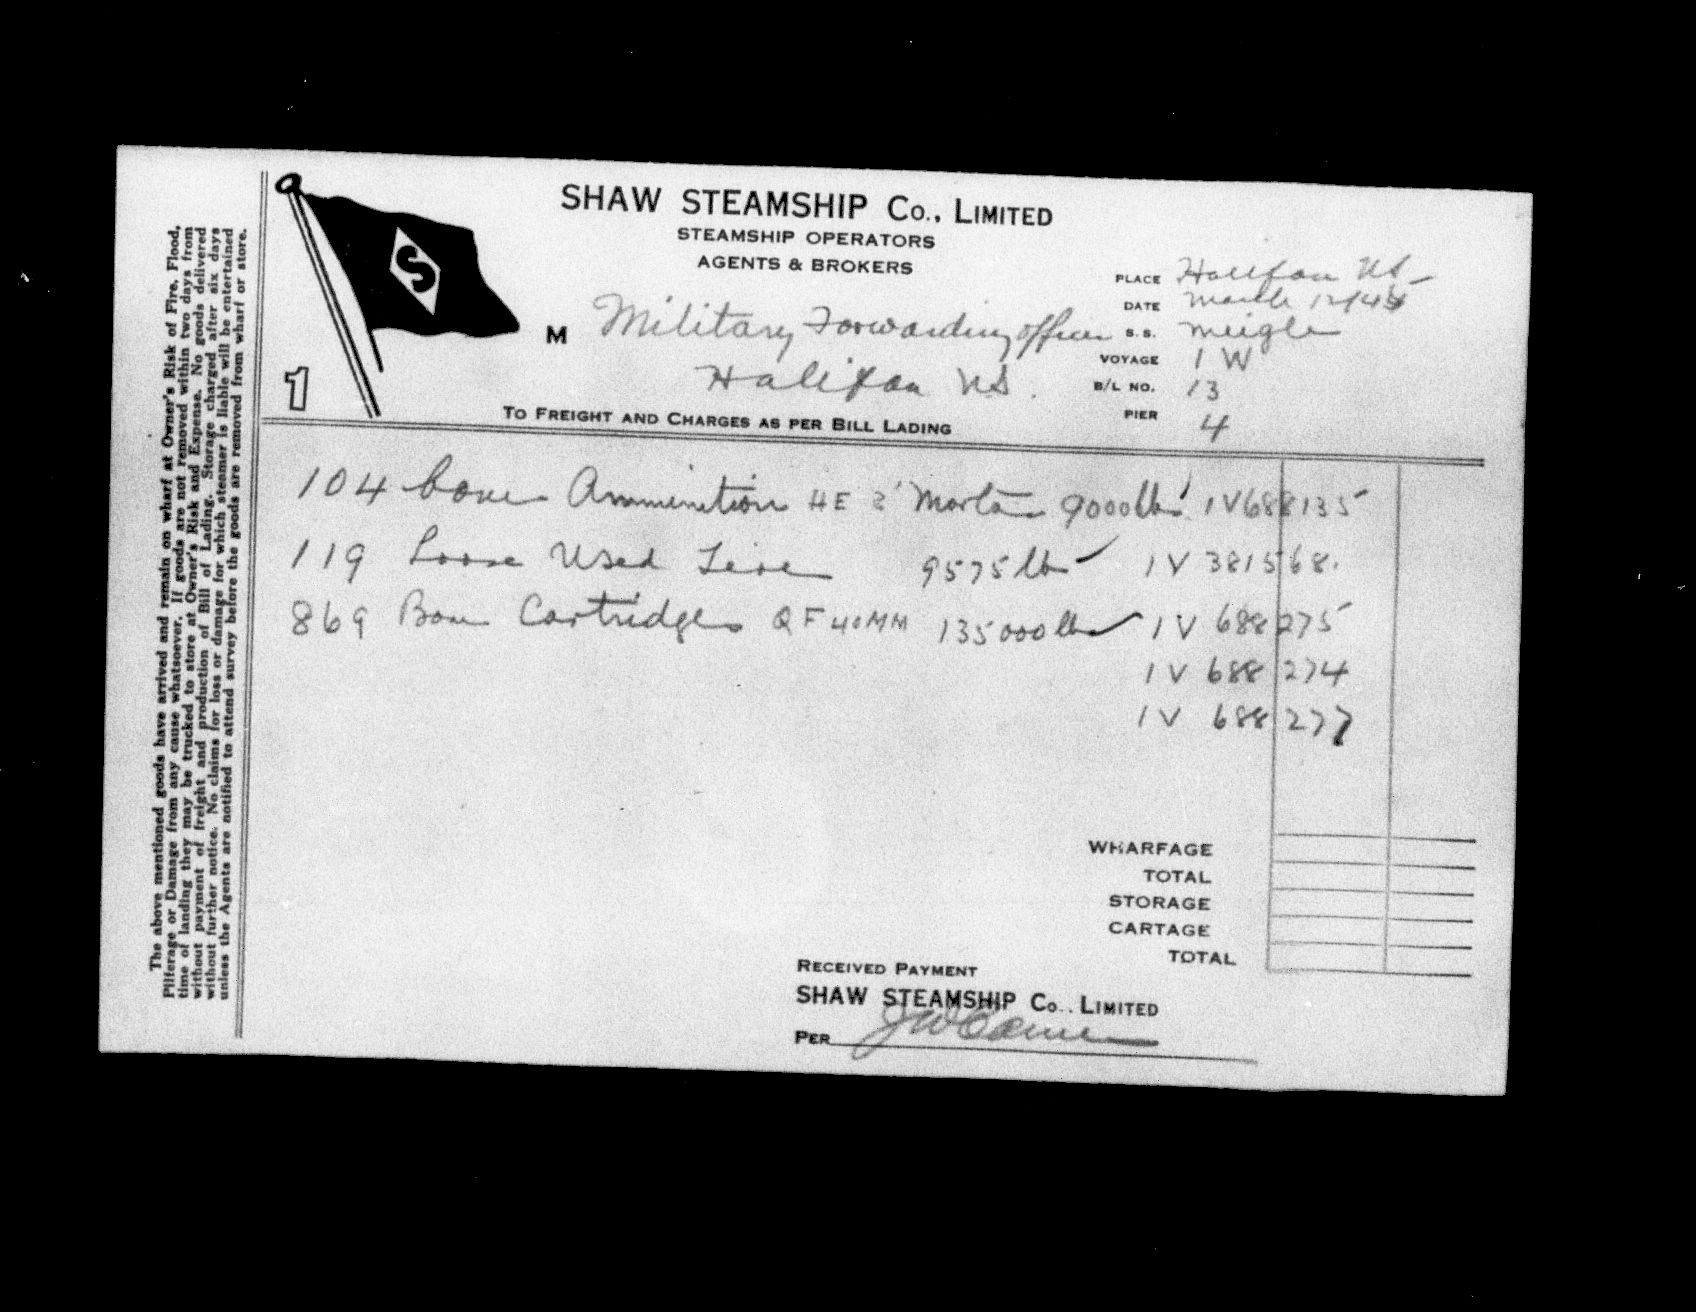 SHAW STEAMSHIP Co., LIMITED
STEAMSHIP OPERATORS
AGENTS & BROKERS
S
1
PLACE Halifax NS
DATE March 12/45
M Military Forwarding Officer
S.S. Meigle
Halifax NS.
VOYAGE 1 W
B/L NO. 13
PIER 4
TO FREIGHT AND CHARGES AS PER BILL LADING
104 Boxes Ammunition HE 2" Mortar 9000 lbs 1V688135
119 Loose Used Tires 9575 lbs 1V 381568.
869 Boxes Cartridges QF 40MM 135000 lbs 1V 688275
1V 688274
1V 688277
WHARFAGE
TOTAL
STORAGE
CARTAGE
TOTAL
RECEIVED PAYMENT
SHAW STEAMSHIP Co., LIMITED
PER J W
The above mentioned goods have arrived and remain on wharf at Owner's Risk of Fire, Flood,
Pilferage or Damage from any cause whatsoever. If goods are not removed within two days from
time of landing they may be trucked to store at Owner's Risk and Expense. No goods delivered
without payment of freight and production of Bill of Lading. Storage charged after six days
without further notice. No claims for loss or damage for which steamer is liable will be entertained
unless the Agents are notified to attend survey before the goods are removed from wharf or store.